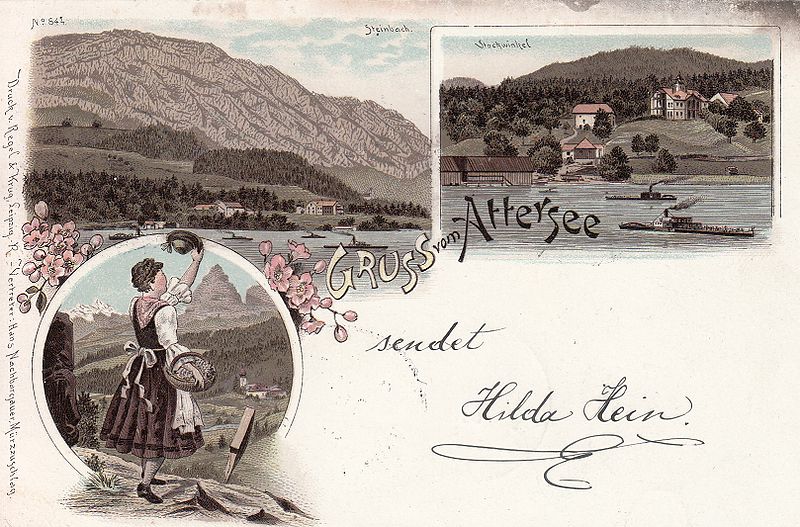 No 642.
Steinbach.
Stockwinkel
GRUSS vom Attersee
sendet
Hilda Hein.
Druck v. Regel & Krug, Leipzig-R. – Vertreter: Hans Nachbargauer, Mürzzuschlag.